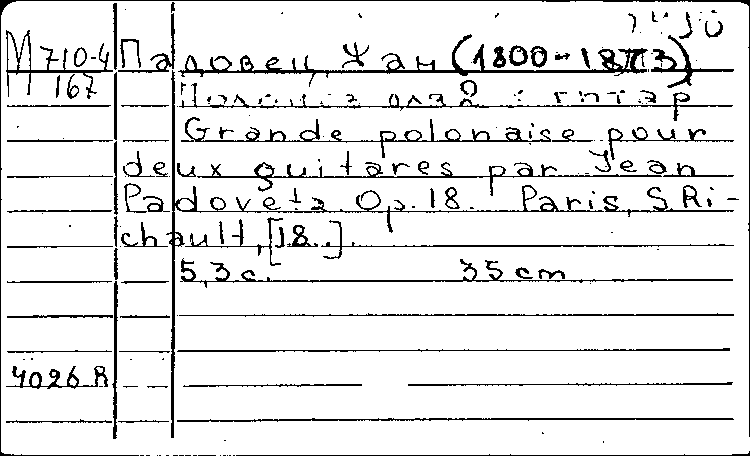 М 710-4 Падовец, Жан (1800-1873)
167 Полонез для 2 гитар
Grande polonaise pour
deux guitares par Jean
Padovetz Op. 18. Paris, S. Ri-
chault, [18..].
5,3 с. 35 cm
4026 R